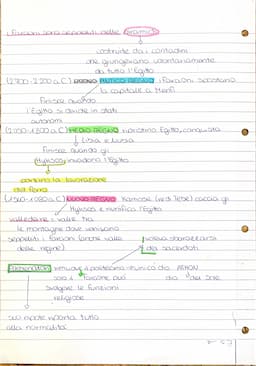 i faraoni sono seppelliti nelle piramidi
costruite dai contadini
che giungevano volontariamente
da tutto l'Egitto
(2700-2200 a.C.) ANTICO REGNO i faraoni spostano
la capitale a Menfi
finisce quando
l'Egitto si divide in stati
autonomi
MEDIO REGNO Egitto, conquista
Libia e Nubia
finisce quando gli
Hyksos invadono l'Egitto
la lavorazione
del ferro
NUOVO REGNO Kamose (re di Tebe) caccia gli
Hyksos e riunifica l'Egitto
valle dei re = valle tra
le montagne dove venivano
seppelliti i faraoni (anche valle
delle regine)
dai sacerdoti
rimuove il politeismo = unico dio ATHON
solo il faraone può dio del sole
svolgere le funzioni
religiose
suo nipote riporta tutto
alla normalità